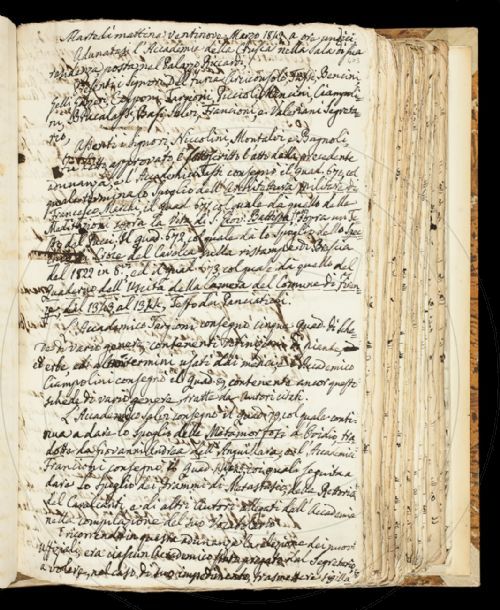 Martedì mattina ventinove Marzo 1842 a ore undici
Adunatasi l'Accademia della Crusca nella Sala di sua
residenza posta nel Palazzo Riccardi,
Presenti i Signori Del Furia Arciconsolo, Bencini,
Gelli, Capponi, Targioni, Piccioli, Mancini, Ciampoli-
ni, Brucalassi, Basi, Salvi, Francioni, e Valeriani Segreta-
rio,
Assenti i Signori Niccolini, Montalvi e Bagnoli,
approvato e sottoscritto l'atto della precedente
adunanza, l'Accademico consegnò il quad. 671, col
quale termina lo Spoglio dell'Architettura Militare di
Francesco Marchi, il quad. 672, col quale dà quello delle
Meditazioni sopra la Vita di S. Gio: Batista, sopra un Te-
del Pucci, il quad. 673, col quale dà lo Spoglio dello Spec-
chio di Croce del Cavalca nella ristampa di Brescia
del 1822 in 8°; ed il quad. col quale dà quello del
Quaderno dell'Uscita della Camera del Comune di Firen-
ze del 1343 al 1344, Testo da Pancia
L'Accademico Targioni consegnò cinque quad. di Sche-
de di vario genere contenenti definizioni di piante, di
erbe ed altri termini usati dai medici; l'Accademico
Ciampolini consegnò il Quad. contenente ancor questi
schede di vario genere tratte da Autori citati.
L'Accademico Salvi consegnò il quad. 79, col quale conti-
nua a dare lo Spoglio delle Metamorfosi di Ovidio tra-
dotte da Giovanni Andrea dell'Anguillara; e l'Accademico
Francioni consegnò il quad. col quale seguita a
dare lo Spoglio dei Drammi di Metastasio, della Rettorica
del Cavalcanti, e di altri Autori adottati dall'Accademia
nella compilazione del suo Vocabolario.
Ricorrendo in questa adunanza la elezione dei nuovi
Ufiziali, era ciascun Accademico stato pregato dal Segretario,
a volere, nel caso di suo impedimento, trasmettere sigilla-